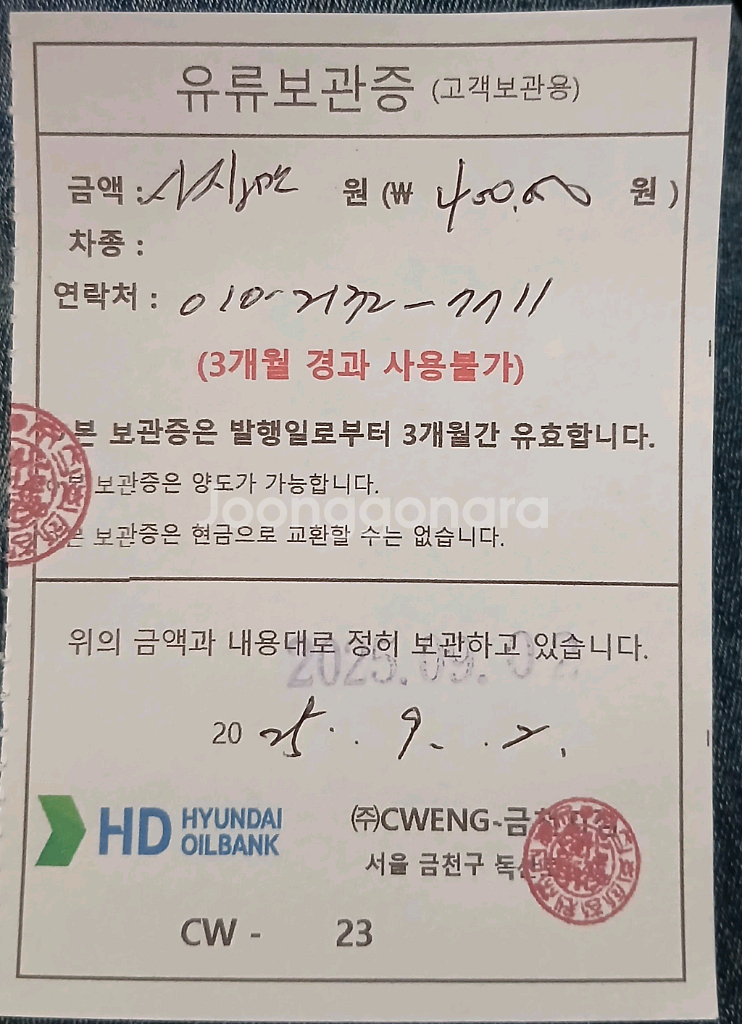 유류보관증 (고객보관용)
금액 : 사십만 원 (₩ 400,000 원 )
차종 :
연락처 : 010-2132-7711
(3개월 경과 사용불가)
본 보관증은 발행일로부터 3개월간 유효합니다.
본 보관증은 양도가 가능합니다.
Joonggonara
본 보관증은 현금으로 교환할 수는 없습니다.
위의 금액과 내용대로 정히 보관하고 있습니다.
2025.09.02
20 25. 9. 2.
HD HYUNDAI OILBANK
(주)CWENG-금천
서울 금천구
CW - 23